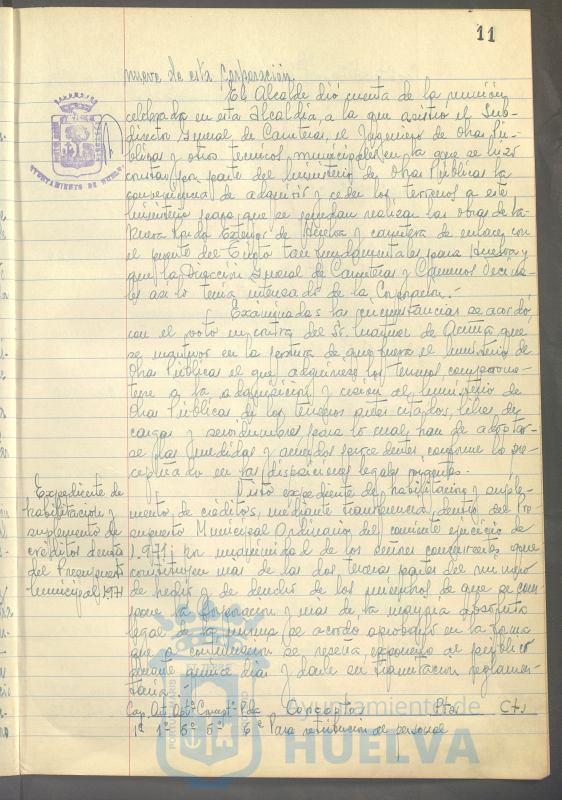 11
nueve de esta Corporación.
El Alcalde dió cuenta de la reunión
celebrada en esta Alcaldía, a la que asistió el Sub-
director General de Carreteras, el Ingeniero de Obras Pú-
blicas y otros tecnicos municipales en la que se hizo
constar por parte del Ministerio de Obras Públicas la
conveniencia de adquirir y ceder los terrenos a este
Ministerio para que se puedan realizar las obras de la
Nueva Ronda Exterior de Huelva y carretera de enlace con
el puente del Tinto tan fundamentales para Huelva y
que la Dirección General de Carreteras y Caminos Vecina-
les así lo tenía interesado de la Corporación.-
Examinadas las circunstancias se acordó,
con el voto en contra del Sr. Martín de Oliva que
se mantuvo en la postura de que fuera el Ministerio de
Obras Públicas el que adquiriese los terrenos comprome-
terse a la adquisición y cesión al Ministerio de
Obras Públicas de los terrenos antes citados, libres de
cargas y servidumbres para lo cual han de adoptar-
se las medidas y acuerdos procedentes conforme lo pre-
ceptuado en las disposiciones legales vigentes.
Expediente de
habilitación y
suplemento de
créditos dentro
del Presupuesto
Municipal 1971
Visto expediente de habilitación y suple-
mento de créditos, mediante transferencia, dentro del Pre-
supuesto Municipal Ordinario del corriente ejercicio de
1.971; por unanimidad de los señores concurrentes que
constituyen mas de las dos terceras partes del número
de hecho y de derecho de los miembros de que se com-
pone la Corporación y más de la mayoría absoluta
legal de la misma se acordó aprobarlo en la forma
que a continuación se reseña exponerlo al público
durante quince días y darle su tramitación reglamen-
taria:-
Cap. Art. Conceptos Ptas Cts
1º 1º 5º 5º 6º Para retribución de personal
AYUNTAMIENTO DE HUELVA
Ayuntamiento de
HUELVA